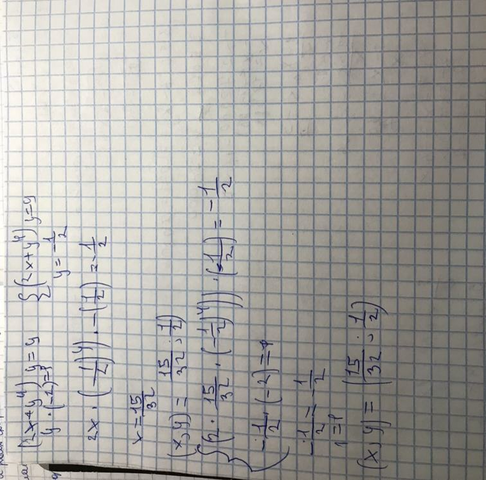 {(2x+y⁴) y=y    {(2x+y⁴) y=y
y·(-2)=1    y=-1/2
2x·(-1/2)⁴)-(1/2)=-1/2
x=15/32
(x,y)= (15/32, 1/2)
{(2·15/32·(-1/2)⁴))·(1/2)=-1/2
-1/2·(-2)=1
-1/2=-1/2
1=1
(x,y)=(15/32, 1/2)